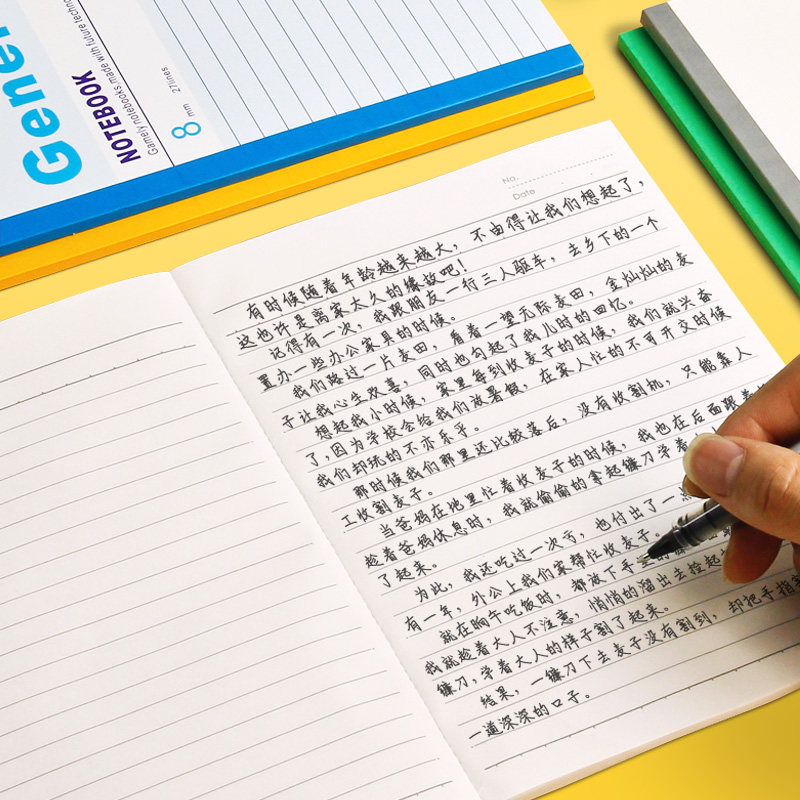 Gener
NOTEBOOK
Gamely notebooks, made with future techno
8 mm 27lines
No.
Date
有时候随着年龄越来越大，不由得让我们想起了，
这也许是离家太久的缘故吧！
记得有一次，我跟朋友一行三人驱车，去乡下的一个
置办一些办公家具的时候。
我们路过一片麦田，看着一望无际麦田，金灿灿的麦
子让我心生欢喜，同时也勾起了我儿时的回忆。
想起我小时候，家里每到收麦子的时候，我们就兴奋
了，因为学校会给我们放暑假，在家人忙的不可开交时候
我们却玩的不亦乐乎。
那时候我们那里还比较落后，没有收割机，只能靠人
工收割麦子。
当爸妈在地里忙着收麦子的时候，我也在后面跟着
趁着爸妈休息时，我就偷偷的拿起镰刀学着
了起来。
为此，我还吃过一次亏，也付出了一
有一年，外公上我们家帮忙收麦子。
就在晌午吃饭时，都放下手里的镰
我就趁着大人不注意，悄悄的溜出去捡起
镰刀，学着大人的样子割了起来。
结果，一镰刀下去麦子没有割到，却把手指割
一道深深的口子。